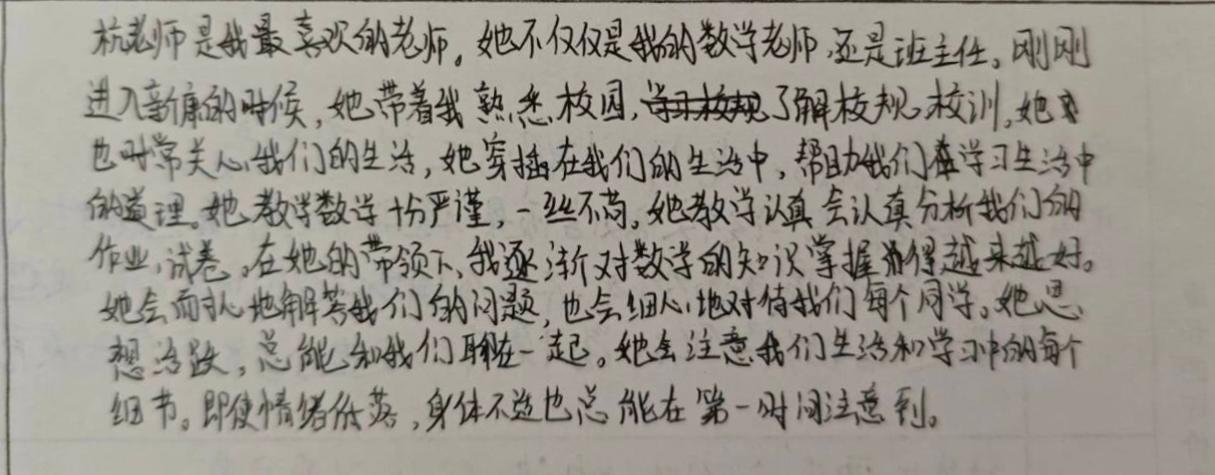 杭老师是我最喜欢的老师。她不仅仅是我的数学老师,还是班主任。刚刚
进入新康的时候,她带着我熟悉校园,学习校规了解校规、校训,她
也时常关心我们的生活,她穿插在我们的生活中,帮助我们在学习生活中
的道理。她教学数学十份严谨,一丝不苟。她教学认真会认真分析我们的
作业,试卷。在她的带领下,我逐渐对数学的知识掌握得越来越好。
她会耐心地解答我们的问题,也会细心地对待我们每个同学。她思
想活跃,总能和我们聊在一起。她会注意我们生活和学习中的每个
细节。即使情绪低落,身体不适也总能在第一时间注意到。